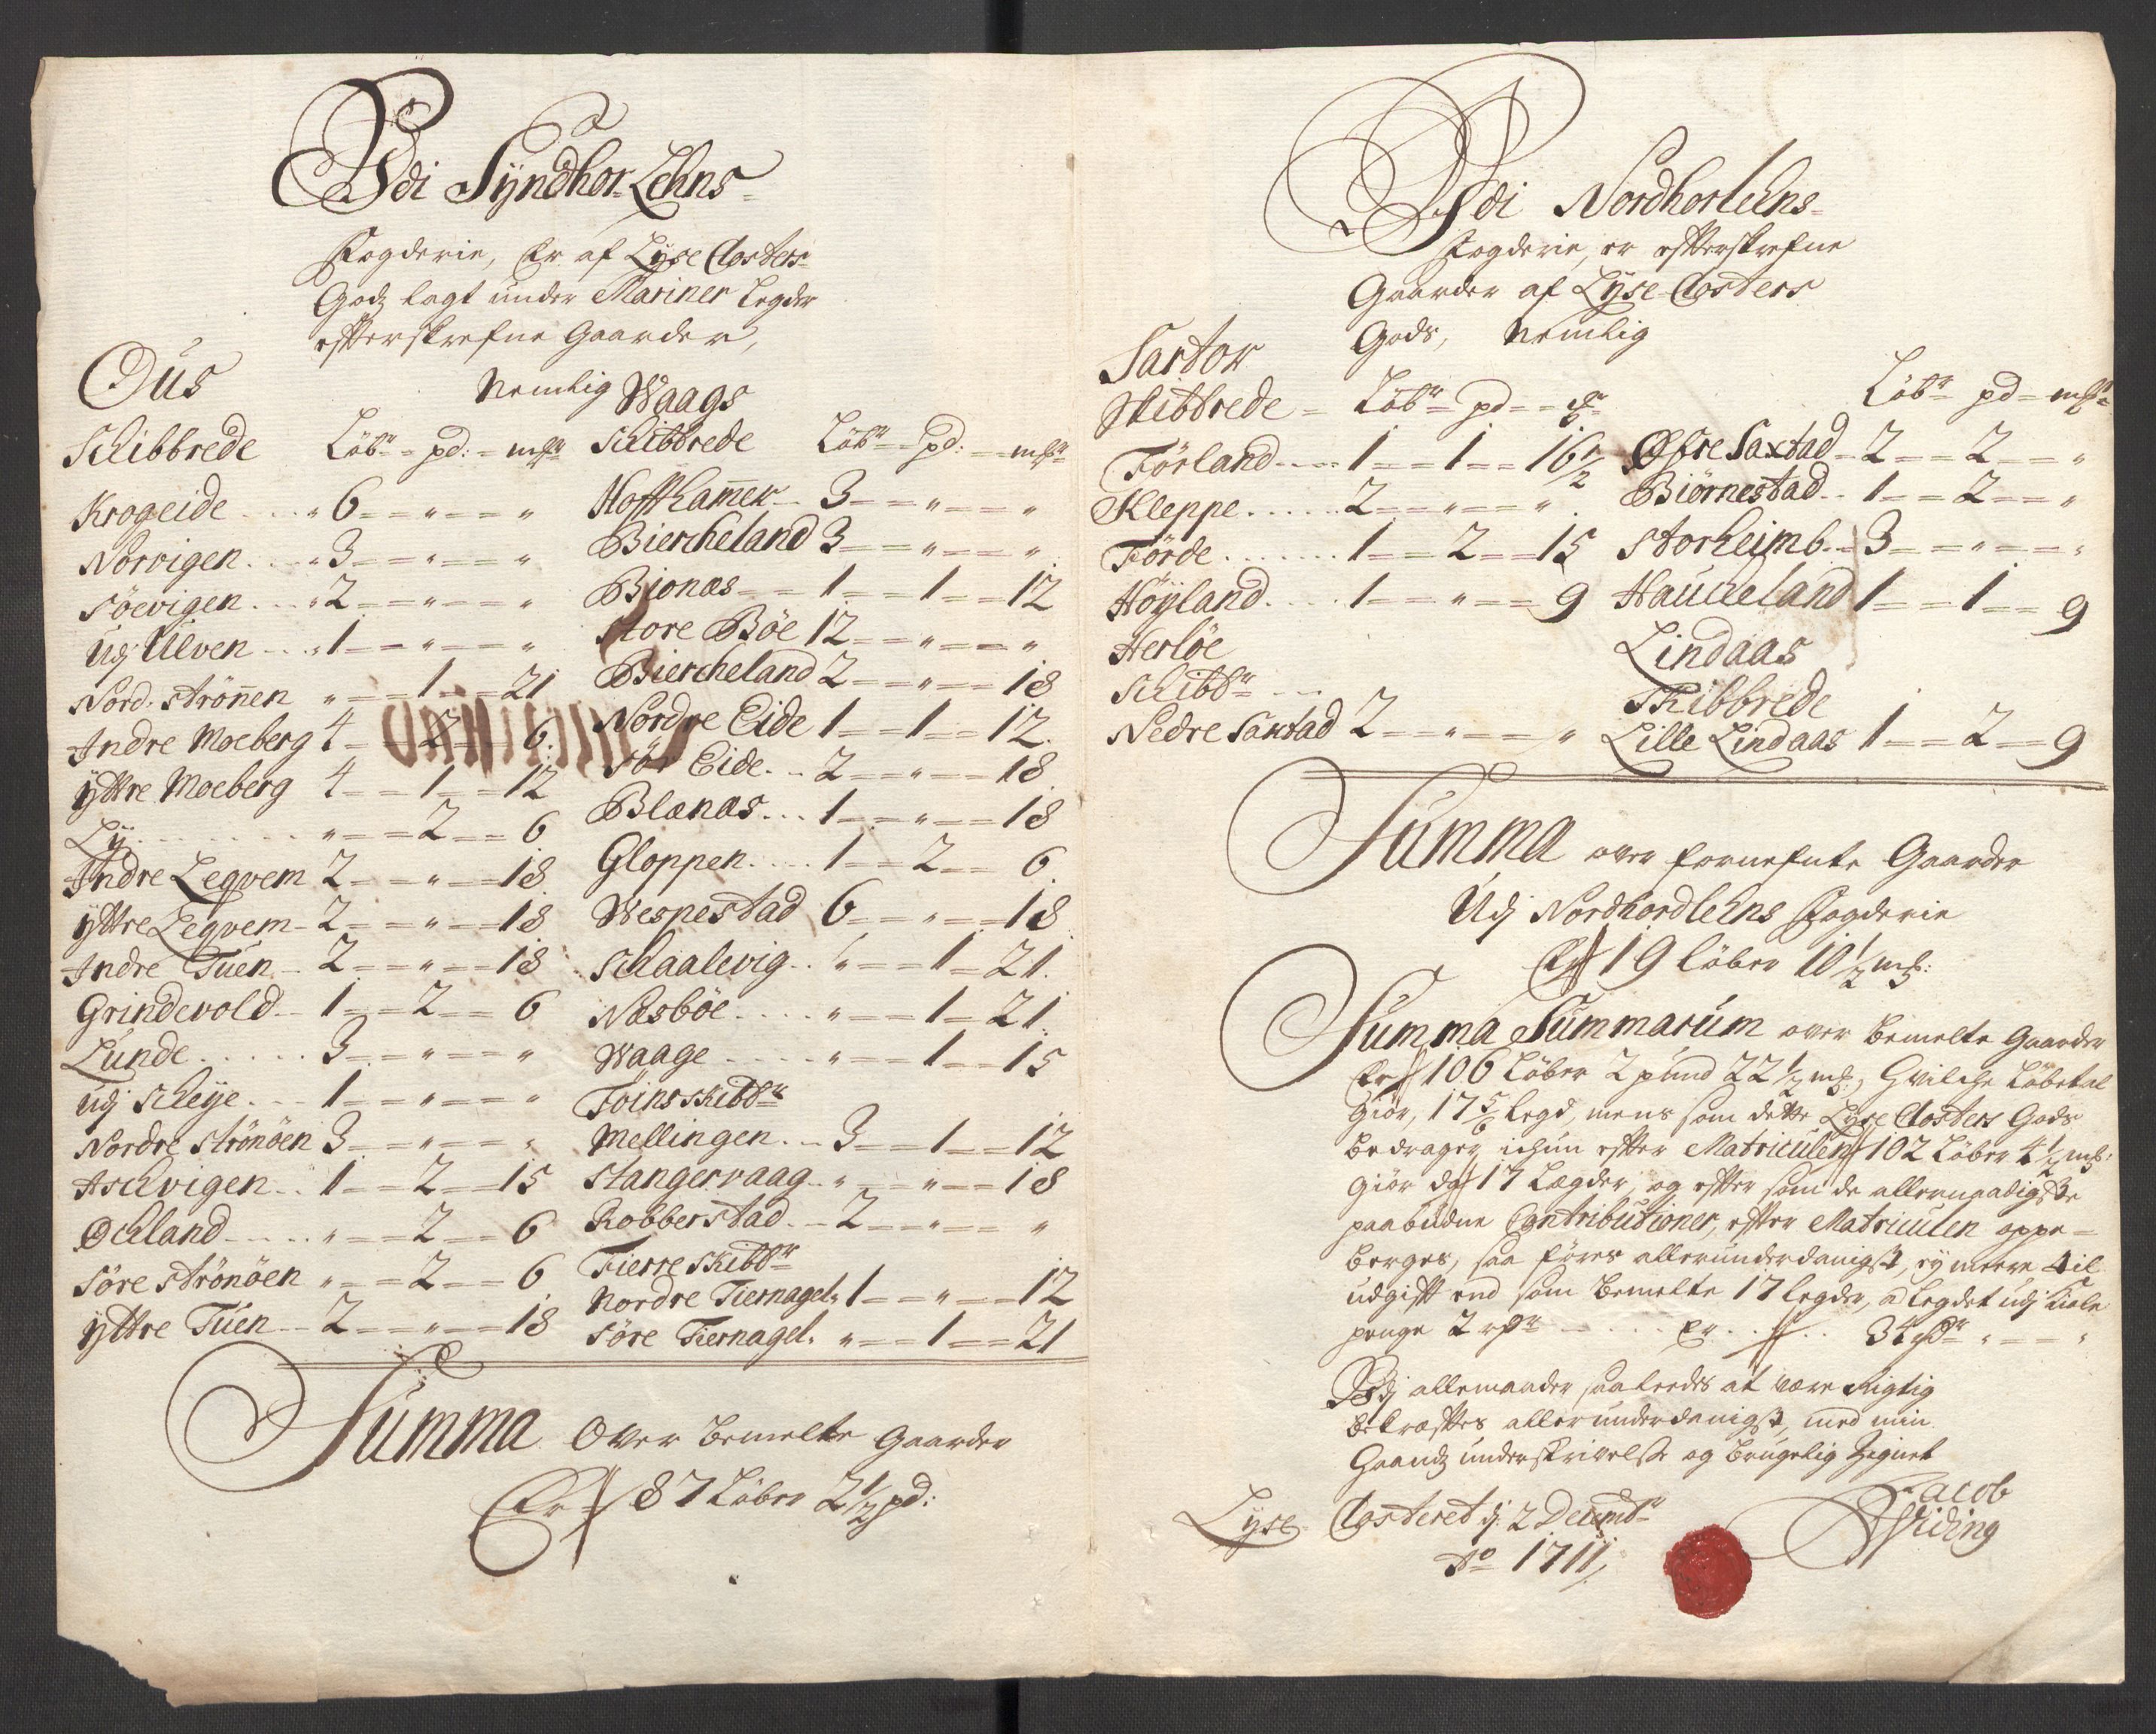 Udi Syndhor-Lehns
Fogderie, Er af Lyse Closters
Godz lagt under Mariner Legder
effterskrefne Gaarder,
Nemlig
Ous
Schibbrede Löbr pd: mkr
Krogeide 6 " "
Norvigen 3 " "
Söevigen 2 " "
Udj Ulven 1 " "
Nord-strönen " 1 21
Indre Moeberg 4 2 6
yttre Moeberg 4 1 12
Ly " 2 6
Indre Leqvem 2 " 18
yttre Leqvem 2 " 18
Indre Tuen 2 " 18
Grindevold 1 2 6
Lunde 3 " "
udj Scheye 1 " "
Nordre Strönöen 3 " "
Aschvigen 1 2 15
Öchland " 2 6
Söre Strönöen " 2 6
yttre Tuen 2 " 18
Waags
Schibbrede Löbr pd: mkr
Hoffhamer 3 " "
Biercheland 3 " "
Bionæs 1 1 12
Store Böe 12 " "
Biercheland 2 " 18
Nordre Eide 1 1 12
Sör Eide 2 " 18
Blanæs 1 " 18
Gloppen 1 2 6
Wespestad 6 " 18
Schaalevig " 1 21
Næsböe " 1 21
Waage " 1 15
Föins skibbr
Mellingen 3 1 12
Stangervaag " " 18
Robberstad 2 " "
Fierre skibbr
Nordre Tiernagel 1 " 12
Söre Tiernagel " 1 21
Summa Over bemelte Gaarder
Er 87 Löber 2 1/2 pd:
Udi Nordhorlehns
Fogderie, er effterskrefne
Gaarder af Lyse Closters
Gods, Nemlig
Sartor
Skibbrede Löbr pd
Förland 1 1 16 1/2
Kleppe 2 " "
Förde 1 2 15
Höyland 1 " 9
Herlöe
Schibbr
Nedre Saxtad 2 " "
Löbr pd mkr
Øfre Saxtad 2 2 "
Biörnestad 1 2 "
Storheimb 3 " "
Haucheland 1 1 9
Lindaas
Skibbrede
Lille Lindaas 1 2 9
Summa over fornefnte Gaarder
Udj Nordhordlehns Fogderie
Er 19 löber 10 1/2 mk:
Summa Summarum over bemelte Gaarder
Er 106 Löber 2 pund 22 1/2 mk, Hvilche Löbetal
Giör, 17 5/6 legd, mens som dette Lyse Closters Gods
bedrager ichun efter Matriculen 102 Löber 4 1/2 mk:
giör dog 17 Legder, og efter som de allernaadigste
paabudne Contributioner, efter Matriculen oppe-
berges, saa föres allerunderdanigst, ey meere til
udgift end som bemelte 17 legder, a legdet udj
penge 2 rdr Er 34 rdr " "
saaleedes at være Rigtig
bekræftes allerunderdanigst med min
Haandz underskrivelse og brugelig Zignet
Lyse Closteret d: 2 Decembr
Ao 1711
Jacob
Widing